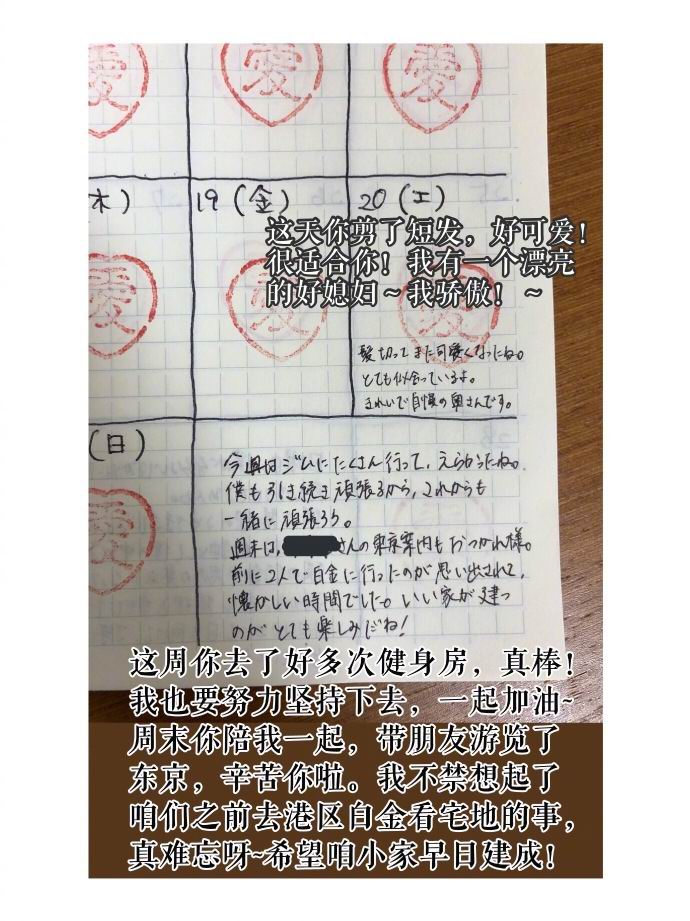 愛 愛 愛
木) 19 (金) 20 (土)
这天你剪了短发，好可爱！
很适合你！我有一个漂亮
的好媳妇～我骄傲！～
愛 愛 愛
髪切ってまた可愛くなったね。
とても似合っているよ。
きれいで自慢の奥さんです。
(日)
愛
今週はジムにたくさん行って、えらかったね。
僕も引き続き頑張るから、これからも
一緒に頑張ろう。
週末は、さんの東京案内もおつかれ様。
前に2人で白金に行ったのが思い出されて、
懐かしい時間でした。いい家が建つ
のがとても楽しみだね！
这周你去了好多次健身房，真棒！
我也要努力坚持下去，一起加油~
周末你陪我一起，带朋友游览了
东京，辛苦你啦。我不禁想起了
咱们之前去港区白金看宅地的事，
真难忘呀~希望咱小家早日建成！